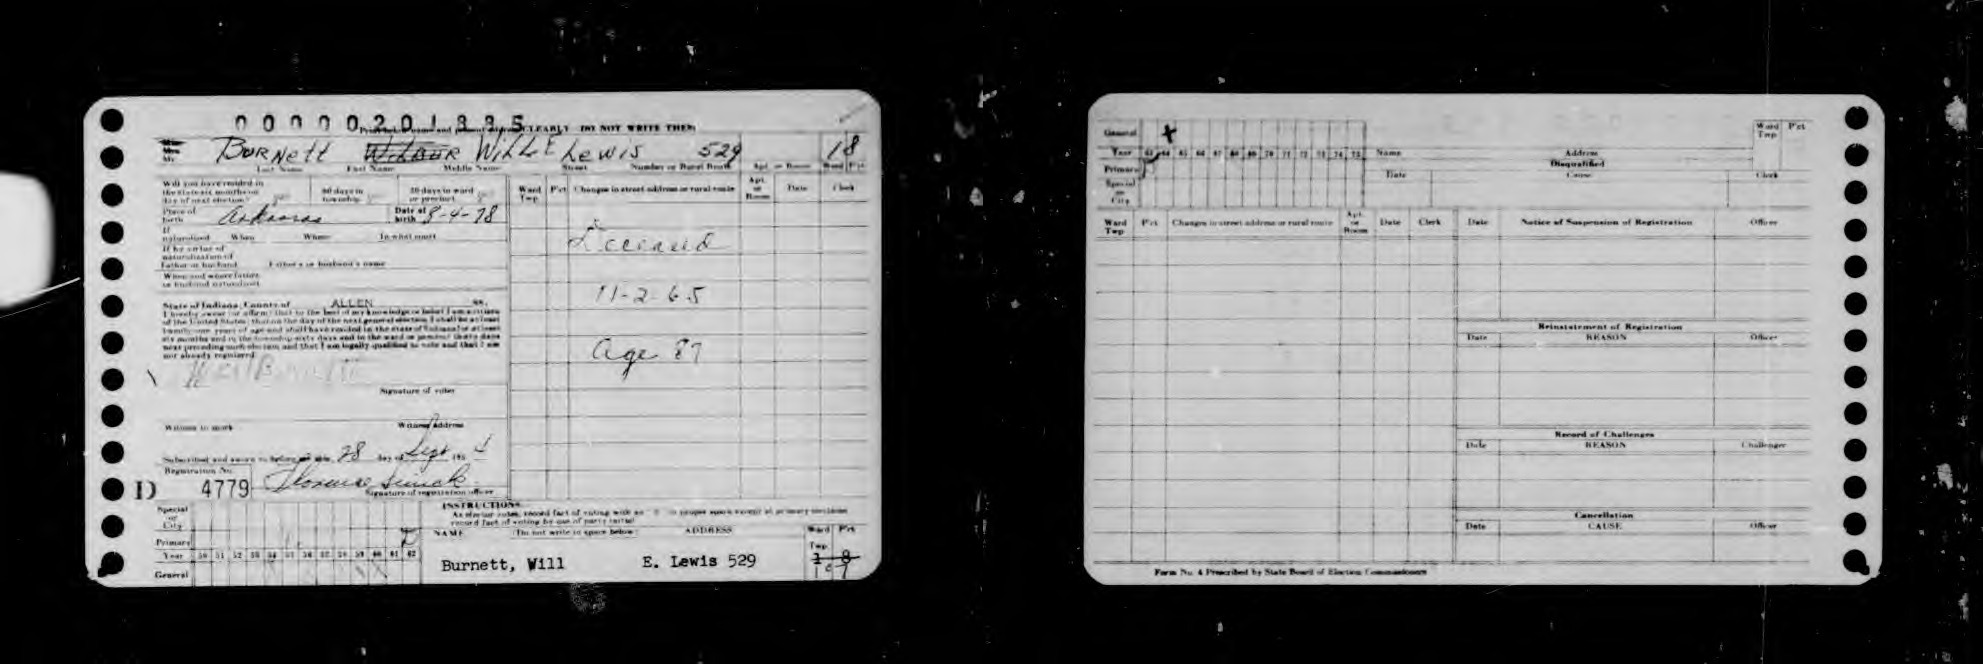 Print below name and present address CLEARLY DO NOT WRITE THEM
Mr BURNETT WILL E LEWIS 529 18
Last Name First Name Middle Name Street Number or Rural Route Apt. or Room Ward Pct
Will you have resided in the state six months on day of next election?
60 days in township
30 days in ward or precinct
Place of birth Arkansas Date of birth 8-4-78
If naturalized When Where In what court
If by virtue of naturalization of Father or husband Father's or husband's name
When and where father or husband naturalized
State of Indiana, County of ALLEN ss.
I hereby swear (or affirm) that to the best of my knowledge or belief I am a citizen
of the United States; that on the day of the next general election, I shall be at least
twenty-one years of age and shall have resided in the state of Indiana for at least
six months and in the township sixty days and in the ward or precinct thirty days
next preceding such election, and that I am legally qualified to vote and that I am
not already registered.
Will Burnett
Signature of voter
Witness to mark Witness Address
Subscribed and sworn to before me this 28 day of Sept 195 4
Registration No.
D 4779 Florence
Signature of registration officer
Ward Twp Pct Changes in street address or rural route Apt. or Room Date Clerk
Deceased
11-2-65
Age 87
Special or City
Primary
Year 50 51 52 53 54 55 56 57 58 59 60 61 62
General
INSTRUCTIONS
As elector votes, record fact of voting with an "X" in proper space except at primary elections
record fact of voting by use of party initial
NAME (Do not write in space below) ADDRESS Ward Twp Pct
Burnett, Will E. Lewis 529 1 8
1 7
General
Year 63 64 65 66 67 68 69 70 71 72 73 74 75
Primary
Special or City
Name Address Ward Twp Pct
Disqualified
Date Cause Clerk
Ward Twp Pct Changes in street address or rural route Apt. or Room Date Clerk
Date Notice of Suspension of Registration Officer
Reinstatement of Registration
Date REASON Officer
Record of Challenges
Date REASON Challenger
Cancellation
Date CAUSE Officer
Form No. 4 Prescribed by State Board of Election Commissioners